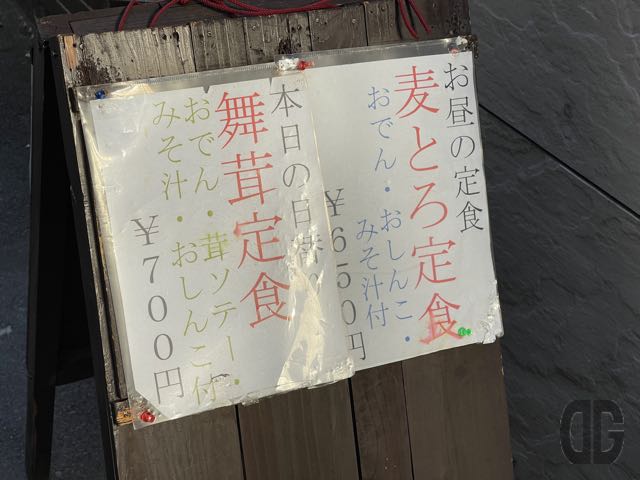 お昼の定食
麦とろ定食
おでん・おしんこ・
みそ汁付
¥650円
本日の日替
舞茸定食
おでん・茸ソテー・
みそ汁・おしんこ付
¥700円
DG